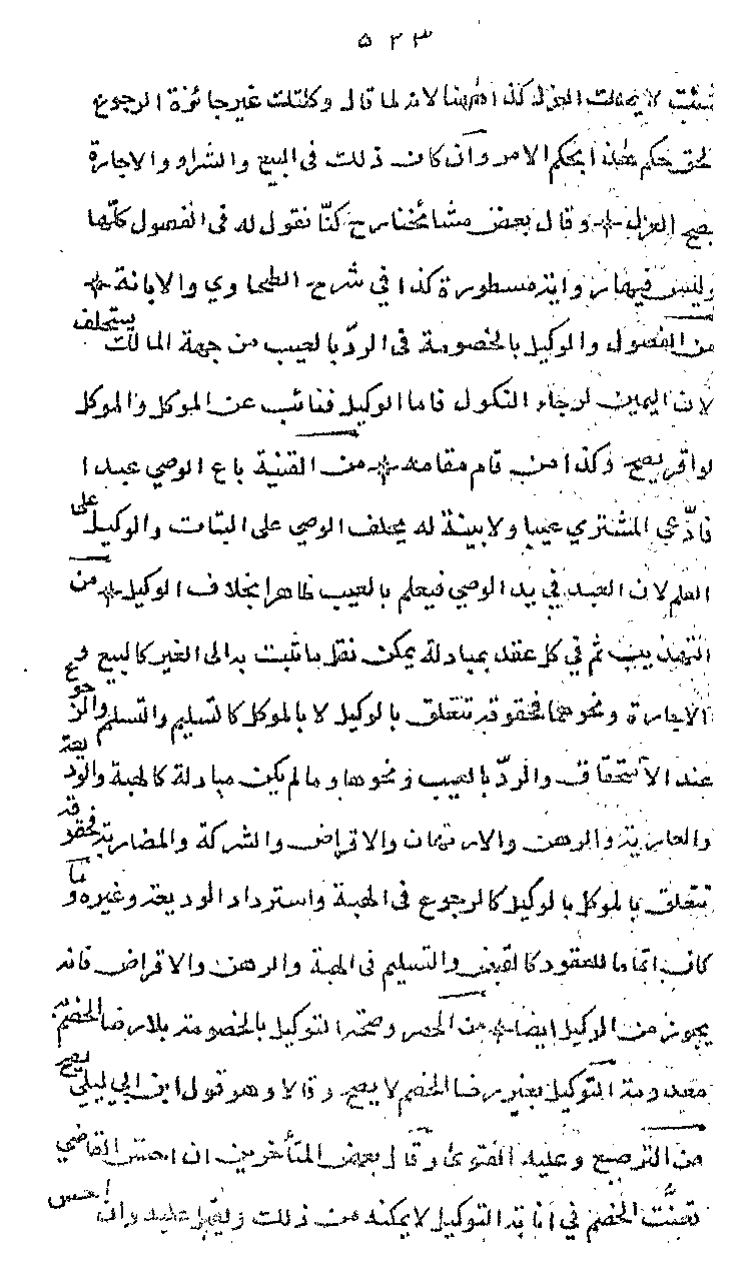 ٥٢٣
شئت لا يملك العزل كذا ههنا لانه لما قال وكلتك غير جائزة الرجوع
لحق حكم هذا بحكم الامر وان كان ذلك في البيع والشراء والاجارة
يصح العزل وقال بعض مشائخنا رح كنّا نقول له في الفصول كلّها
وليس فيها رواية مسطورة كذا في شرح الطحاوي والابانة
من الفصول والوكيل بالخصومة في الردّ بالعيب من جهة المالك يستحلف
لان اليمين لرجاء النكول فاما الوكيل فنائب عن الموكل والموكل
لو اقر يصح وكذا من قام مقامه من القنية باع الوصي عبدا
فادّعى المشتري عيبا ولا بينة له يحلف الوصي على البتات والوكيل على
العلم لان العبد في يد الوصي فيعلم بالعيب ظاهرا بخلاف الوكيل من
التهذيب ثم في كل عقد بمبادلة يمكن نقل ما ثبت به الى الغير كالبيع و
الاجارة ونحوهما فحقوقه تتعلق بالوكيل لا بالموكل كالتسليم والتسلم والرجوع
عند الاستحقاق والردّ بالعيب ونحوها وما لم يكن مبادلة كالهبة والوديعة
والعارية والرهن والارتهان والاقراض والشركة والمضاربة فحقوقه
تتعلق بالموكل بالوكيل كالرجوع في الهبة واسترداد الوديعة وغيره وما
كان اتماما للعقود كالقبض والتسليم في الهبة والرهن والاقراض فانه
يجوز من الوكيل ايضا من الحصر وصحة التوكيل بالخصومة بلا رضا الخصم
معدومة التوكيل بغير رضا الخصم لا يصح وقالا وهو قول ابن ابي ليلى يصح
من الترصيع وعليه الفتوى وقال بعض المتأخرين ان احسّ القاضي
تعنّت الخصم في اباية التوكيل لا يمكنه من ذلك ويقبل عليه وان احس